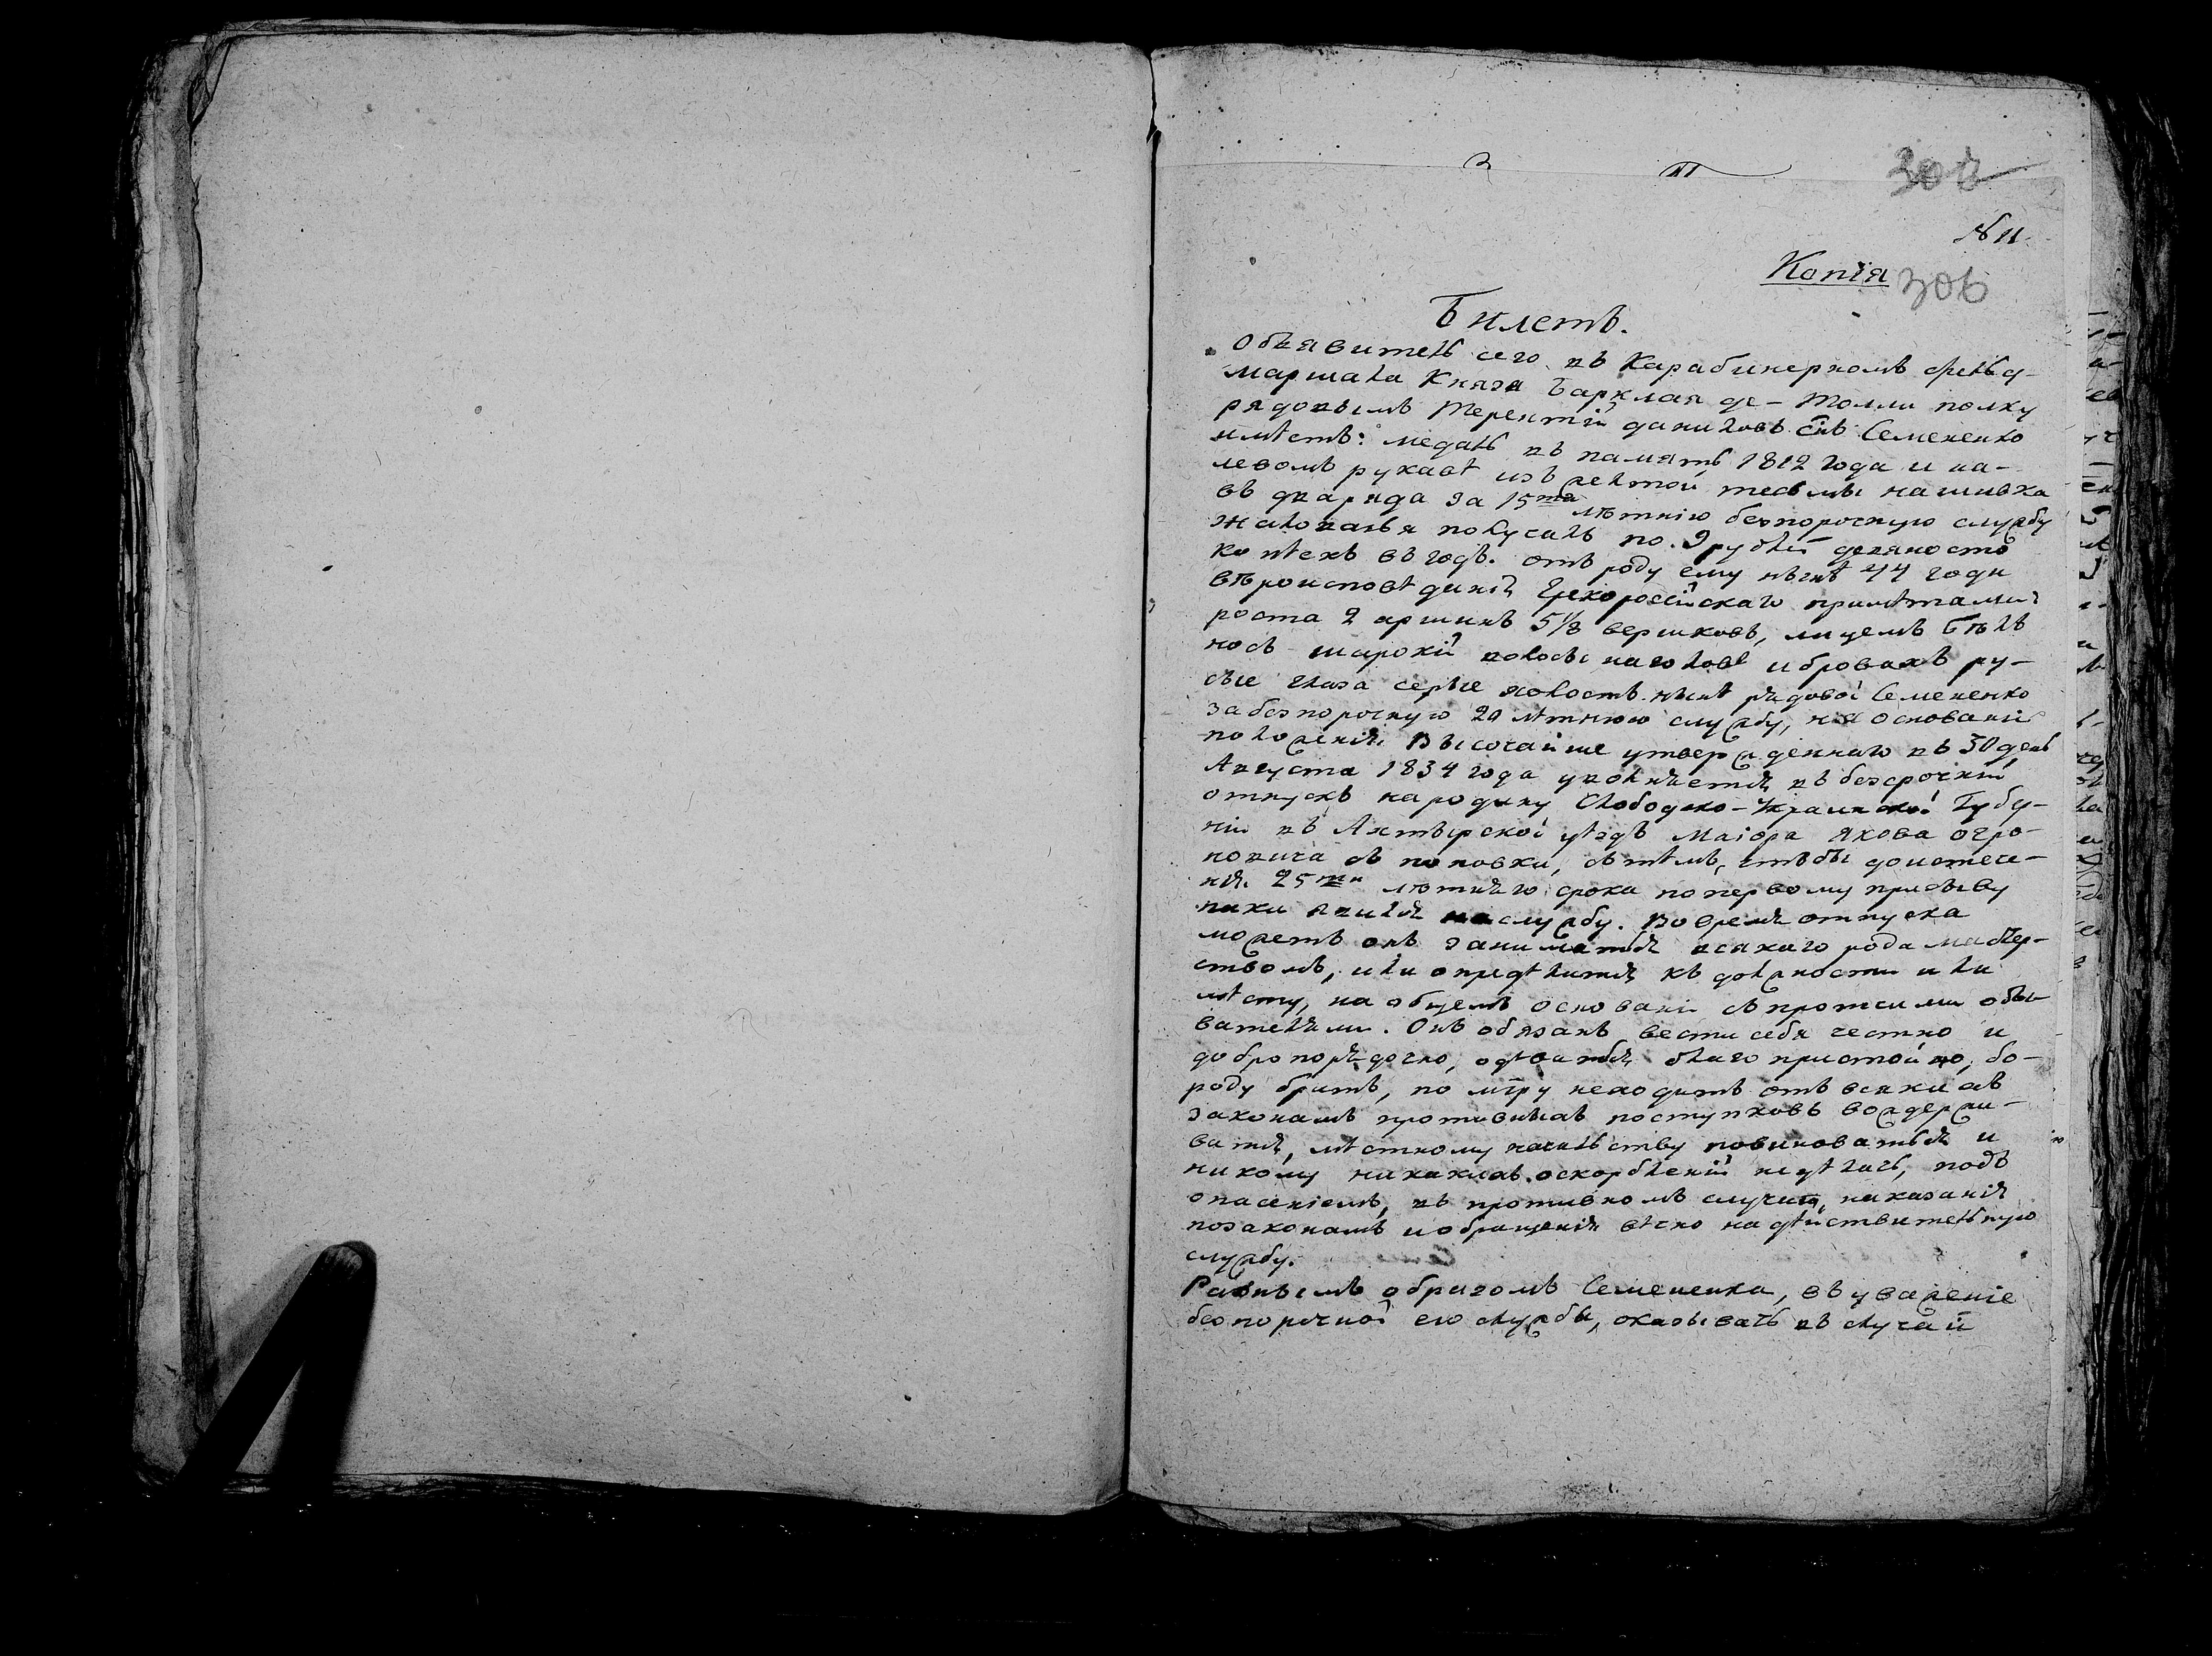 308
№ 11.
Копія 306
Билетъ.
Объявитель сего въ Карабинерномъ фельд-
маршала Князя Барклая де-Толли полку
рядовымъ Терентій Даниловъ снъ Семененко
имѣетъ: медаль въ память 1812 года и на-
левомъ рукавѣ изъ желтой тесьмы нашивка
въ два ряда за 15ти лѣтнію безпорочную службу
жалованья получалъ по. 9 рублей девяносто
копѣекъ въ годъ. отъ роду ему нынѣ 44 годи
вѣроисповѣданія Грекоросійскаго примѣтами:
роста 2 аршинъ 5 1/8 вершковъ, лицемъ бѣлъ
носъ широкій волосы наголовѣ и бровахъ ру-
сые глаза серые холостъ. нынѣ рядовой Семененко
за безпорочную 20 лѣтнюю службу, на основаніи
положенія Высочайше утвержденнаго въ 30 день
Августа 1834 года увольняется въ безсрочный
отпускъ народину Слободско-Украинской Губер-
ніи въ Ахтырской уѣздъ Маіора Якова
с поповки, съ тѣмъ, чтобы доистече-
нія 25ти лѣтняго срока попервому призыву
паки явился на службу. Вовремя отпуска
можетъ онъ заниматься всякаго рода мастер-
ствомъ, или опредѣлится къ должности или
мѣсту, на общемъ основаніи съ протчими обы-
вателями. Онъ обязанъ вести себя честно и
добропорядочно, одѣваться благопристойно, бо-
роду брить, по міру неходить отъ всякихъ
законамъ противныхъ поступковъ воздержи-
ватся, мѣстному начальству повиноваться и
никому никакихъ оскорбленій недѣлать, подъ
опасеніемъ, въ противномъ случаѣ, наказанія
позаконамъ и обращенія вѣчно надѣйствительную
службу.
Равнымъ образомъ Семененка, въ уваженіе
безпорочной его службы, оказывать въ случай